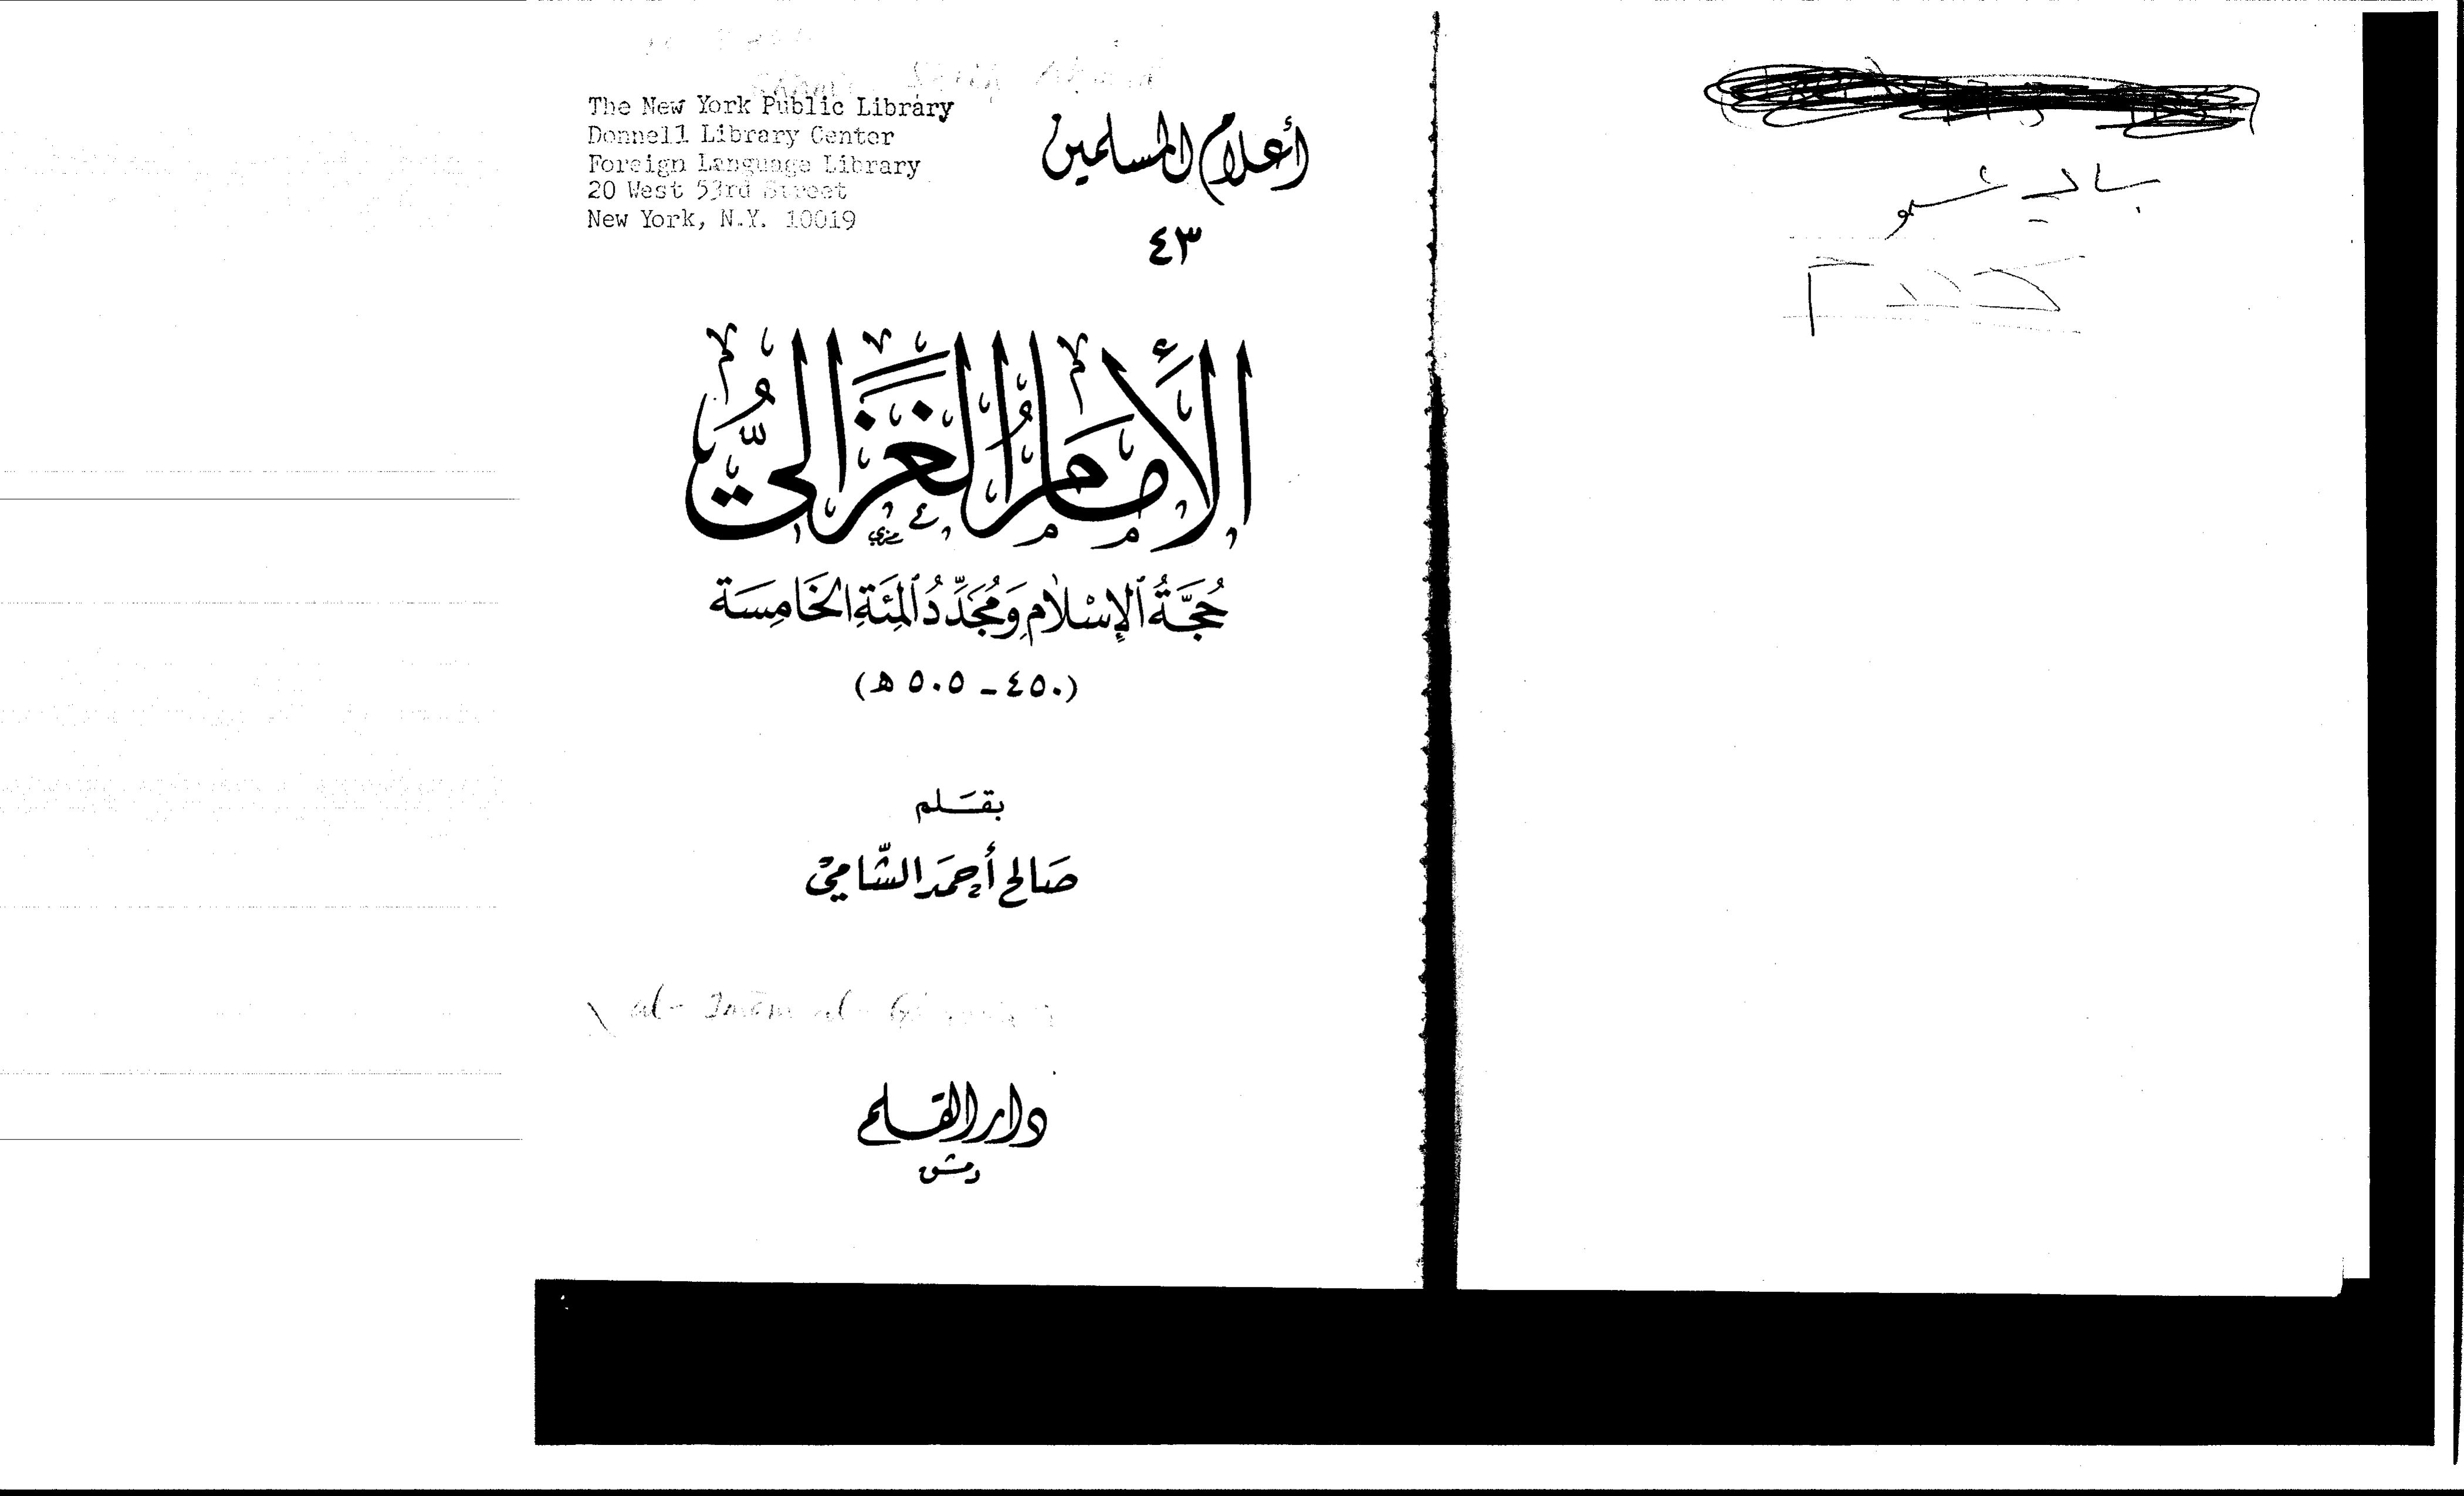 The New York Public Library
Donnell Library Center
Foreign Language Library
20 West 53rd Street
New York, N.Y. 10019
أعلام المسلمين
٤٣
الإِمَامُ الغَزَالِيُّ
حُجَّةُ ٱلإِسْلَامِ وَمُجَدِّدُ ٱلمِئَةِ الخَامِسَة
(٤٥٠ - ٥٠٥ ه)
بقَلم
صَالح أحمَد الشَّامي
al-Imām al-
دار القلم
دمشق